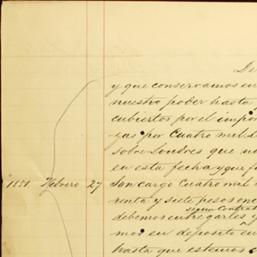 De
y que conservamos en
nuestro poder hasta
cubiertos por el impor
zas por Cuatro mil
sobre Londres que
en esta fecha y que
1881. Febrero 27 San cargo Cuatro mil
renta y siete pesos
segun Contrato
debemos entregarles y
mos en deposito en
hasta que estemos